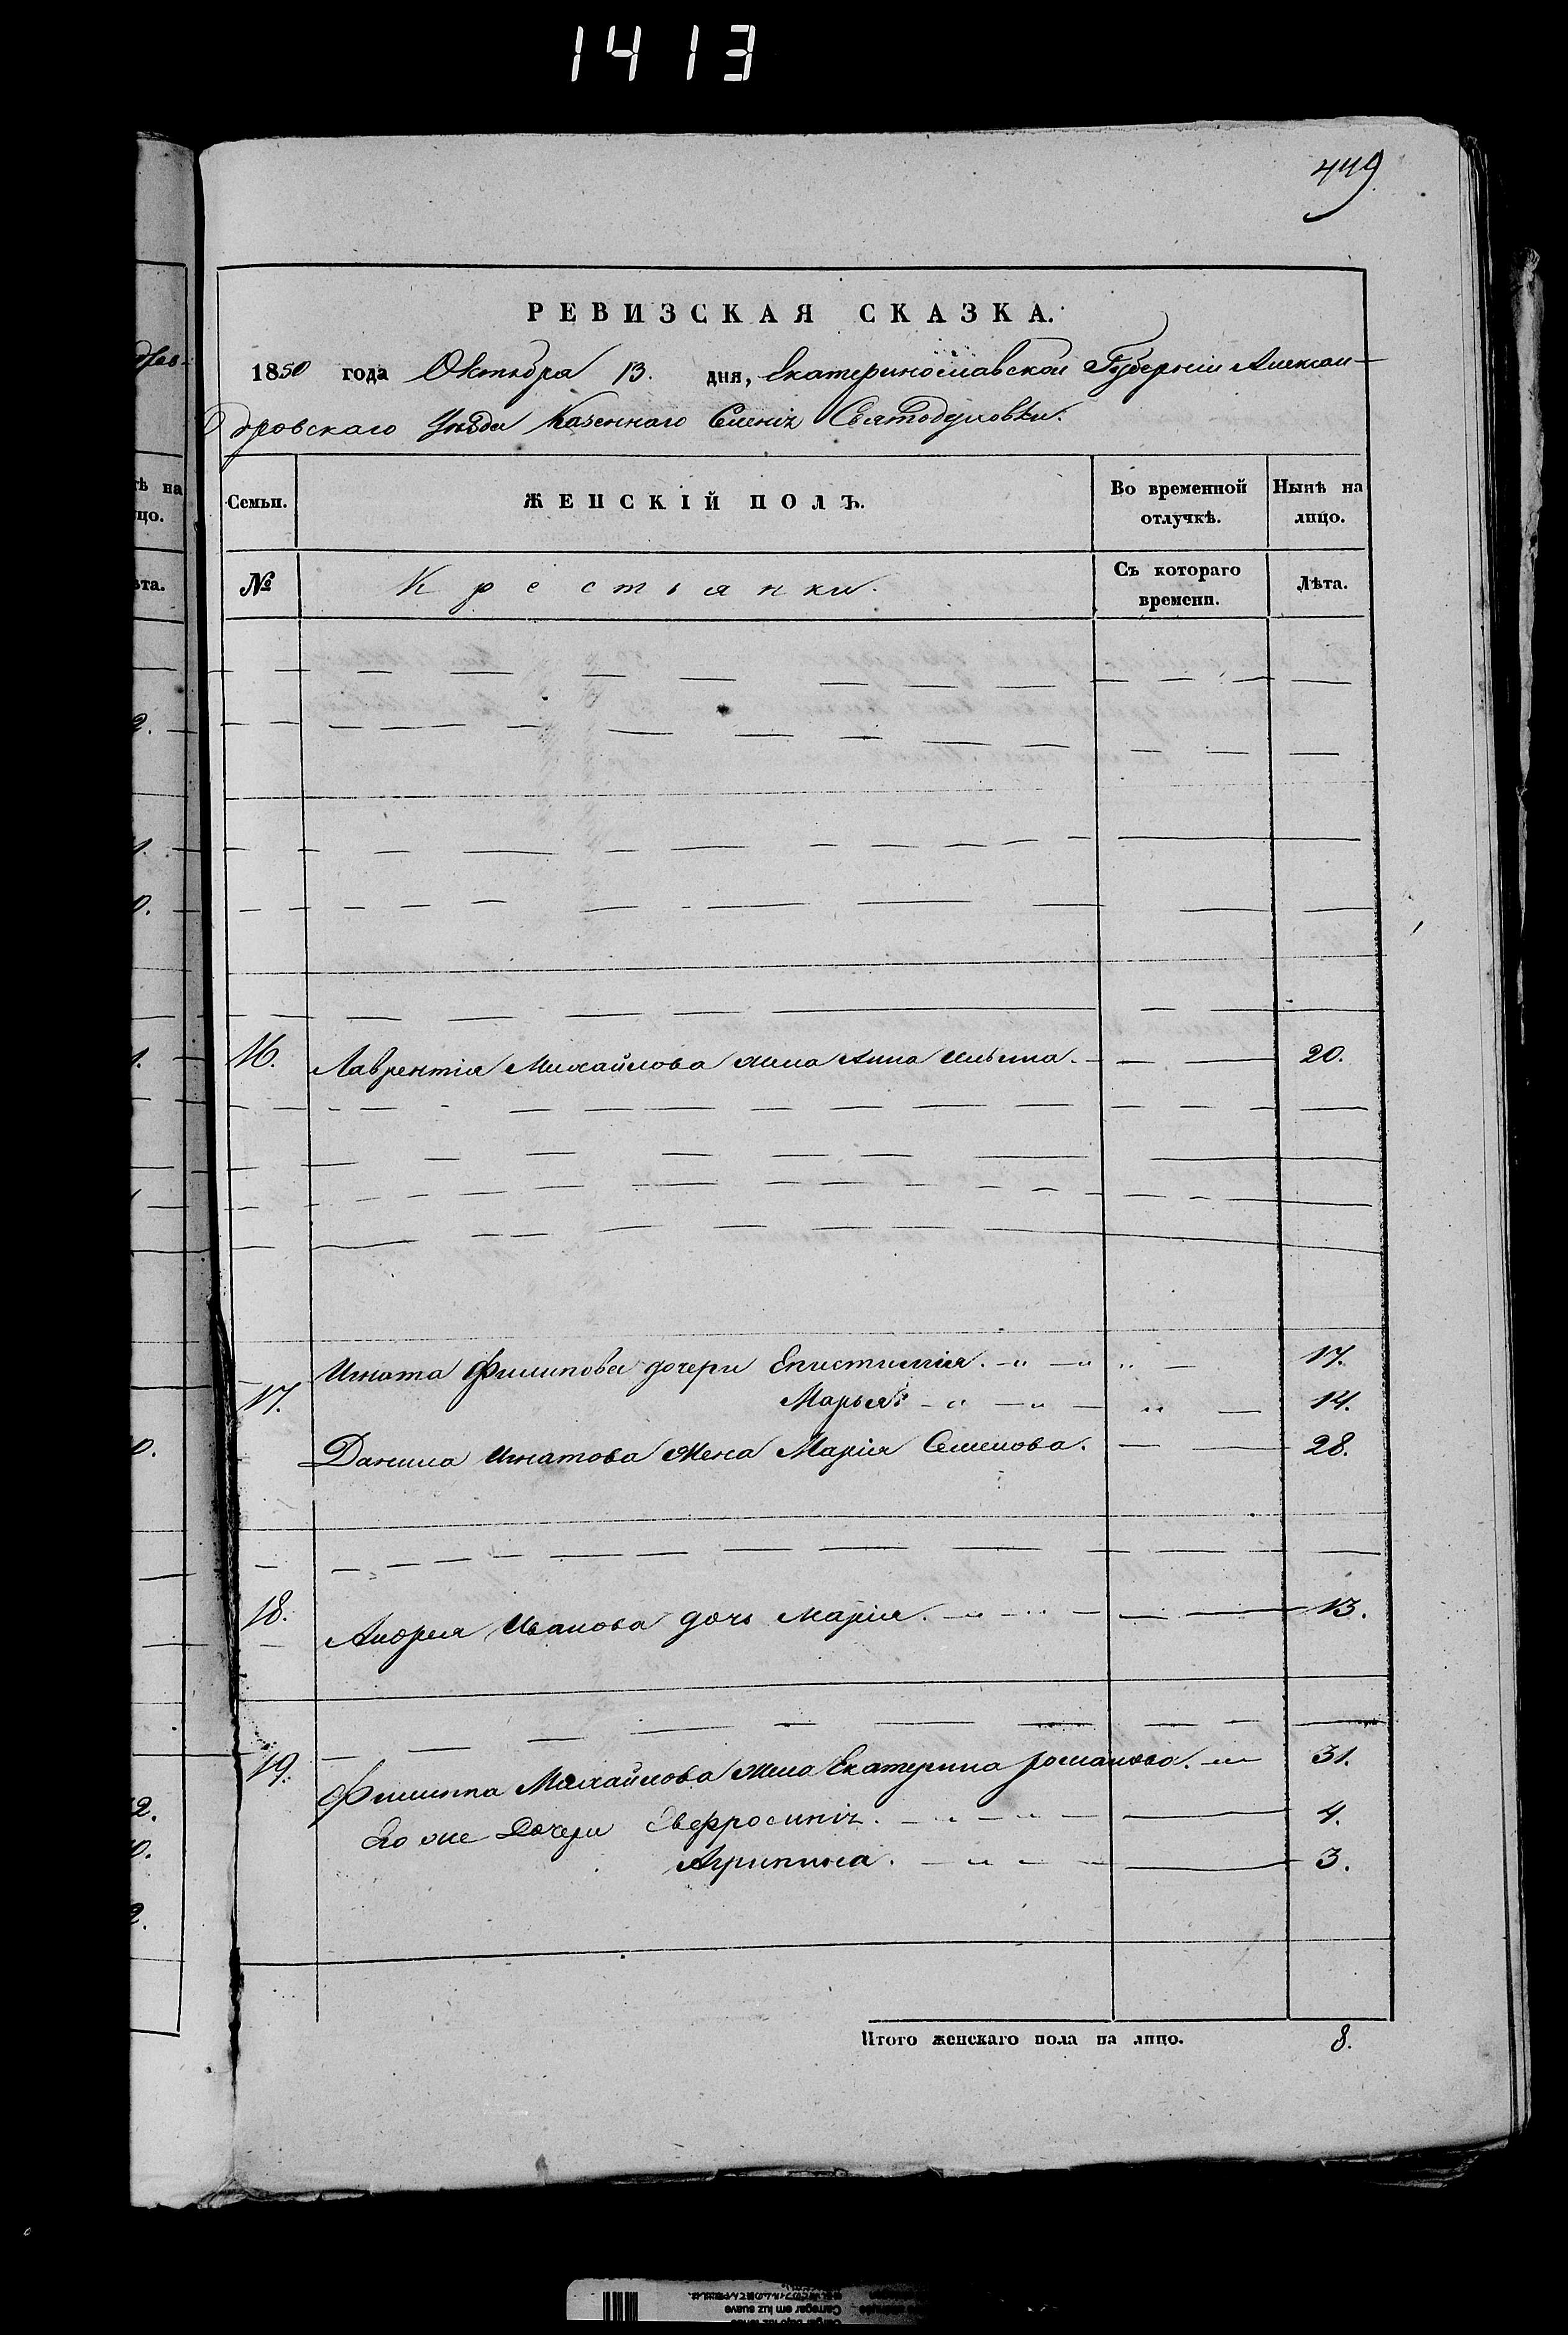 1413
449
РЕВИЗСКАЯ СКАЗКА.
1850 года Октября 13. дня, Екатеринославской Губерніи Алексан-
дровскаго Уѣзда Казеннаго Селенія Святодуховки.
Семьи. ЖЕНСКІЙ ПОЛЪ. Во временной отлучкѣ. Нынѣ на лицо.
№ Крестьянки. Съ котораго времени. Лѣта.
16. Лаврентія Михайлова жена Анна Ильина. 20.
17. Игната Филипова дочери Епистимія. 17.
Марья 14.
Данила Игнатова жена Марія Семенова. 28.
18. Андрея Иванова дочь Марія. 13.
19. Филиппа Михайлова жена Екатерина Романова. 31.
Его же Дочери Евфросинія. 4.
Агрипина. 3.
Итого женскаго пола на лицо. 8.